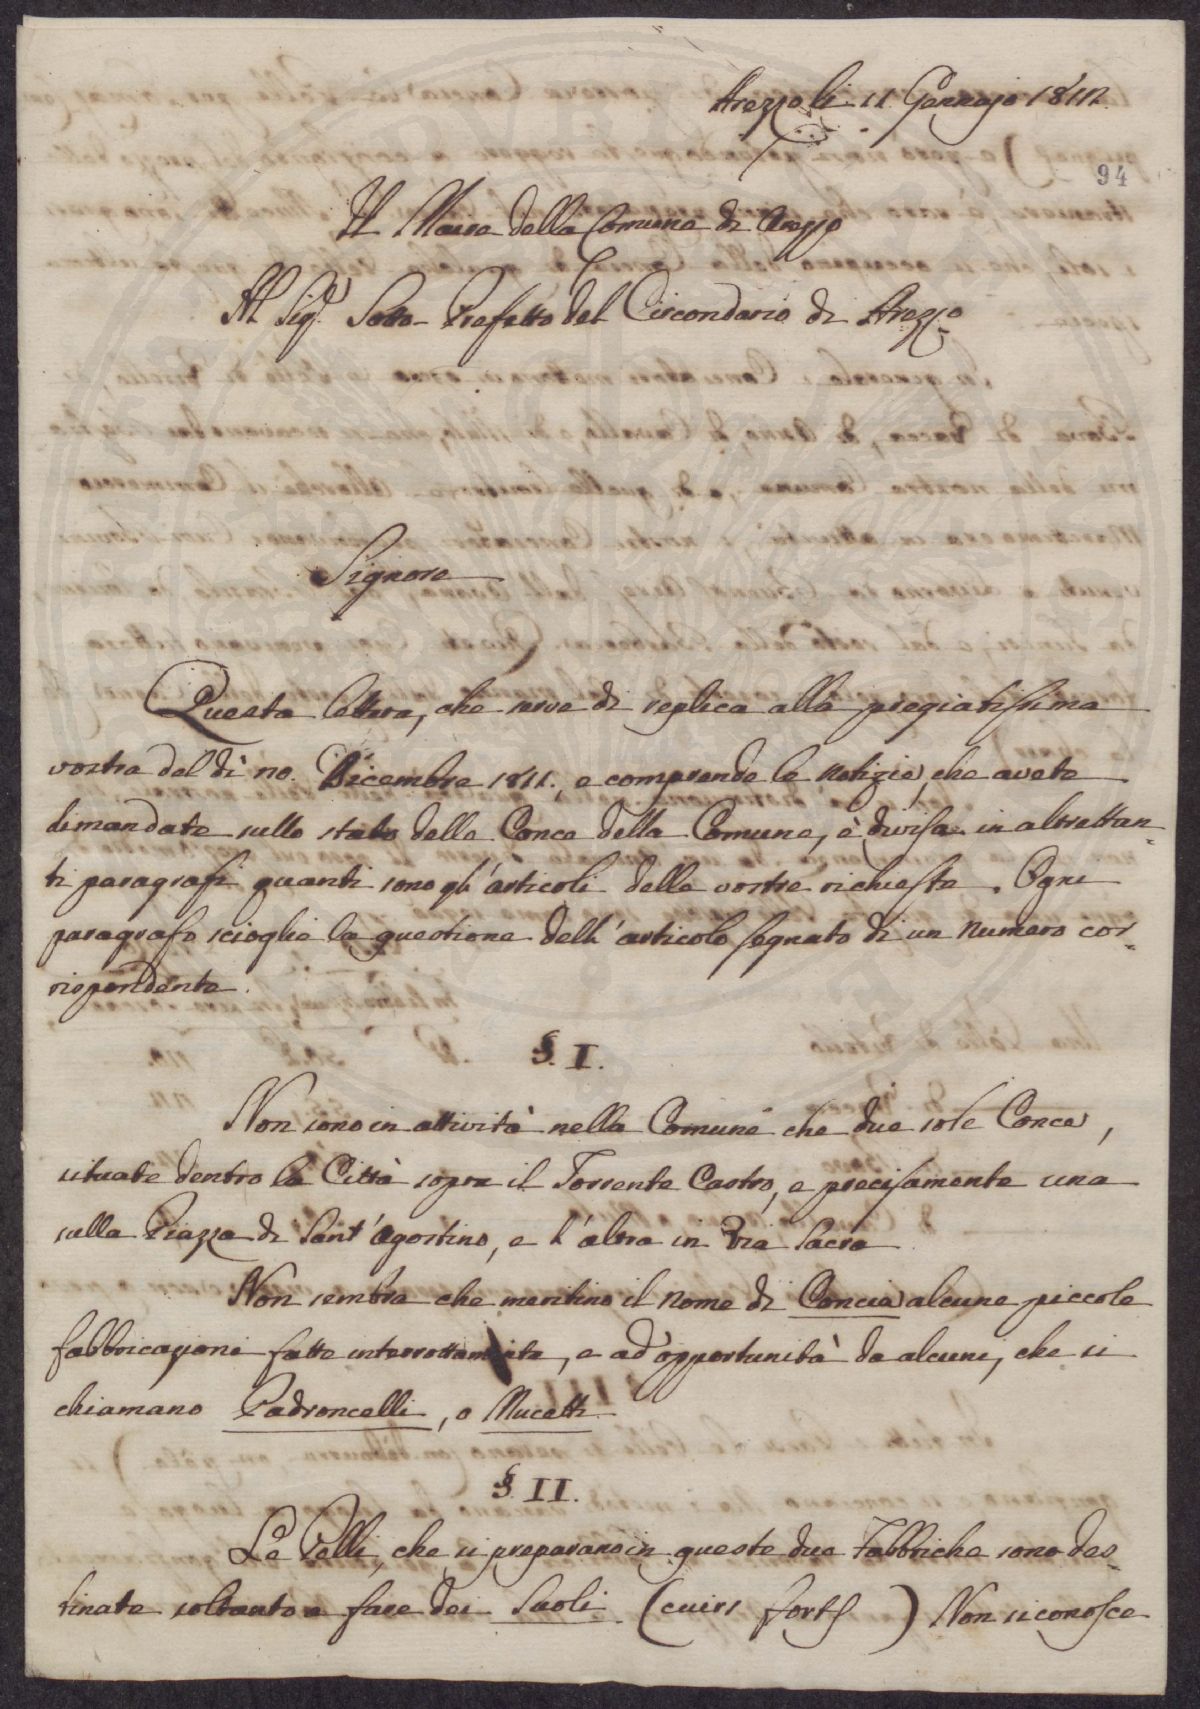 Arezzo li 11 Gennajo 1812
94
Il Maire della Comune di Arezzo
Al Sigr. Sotto-Prefetto del Circondario di Arezzo
Signore
Questa lettera, che serve di replica alla pregiatissima
vostra del dì 20. Dicembre 1811., e comprende le notizie, che avete
dimandate sullo stato delle Conce della Comune, è divisa in altrettan-
ti paragrafi quanti sono gl'articoli delle vostre richieste. Ogni
paragrafo scioglie la questione dell'articolo segnato di un numero cor-
rispondente.
§. I.
Non sono in attività nella Comune che due sole Conce,
situate dentro la Città sopra il Torrente Castro, e precisamente una
sulla Piazza di Sant'Agostino, e l'altra in Via Sacra.
Non sembra che meritino il nome di Concia alcune piccole
fabbricazioni fatte interrottamente, e ad opportunità da alcuni, che si
chiamano Padroncelli, o Mucetti.
§. II.
Le Pelli, che si preparano in queste due Fabbriche sono des-
tinate soltanto a fare dei Suoli (cuirs forts) Non si conosce